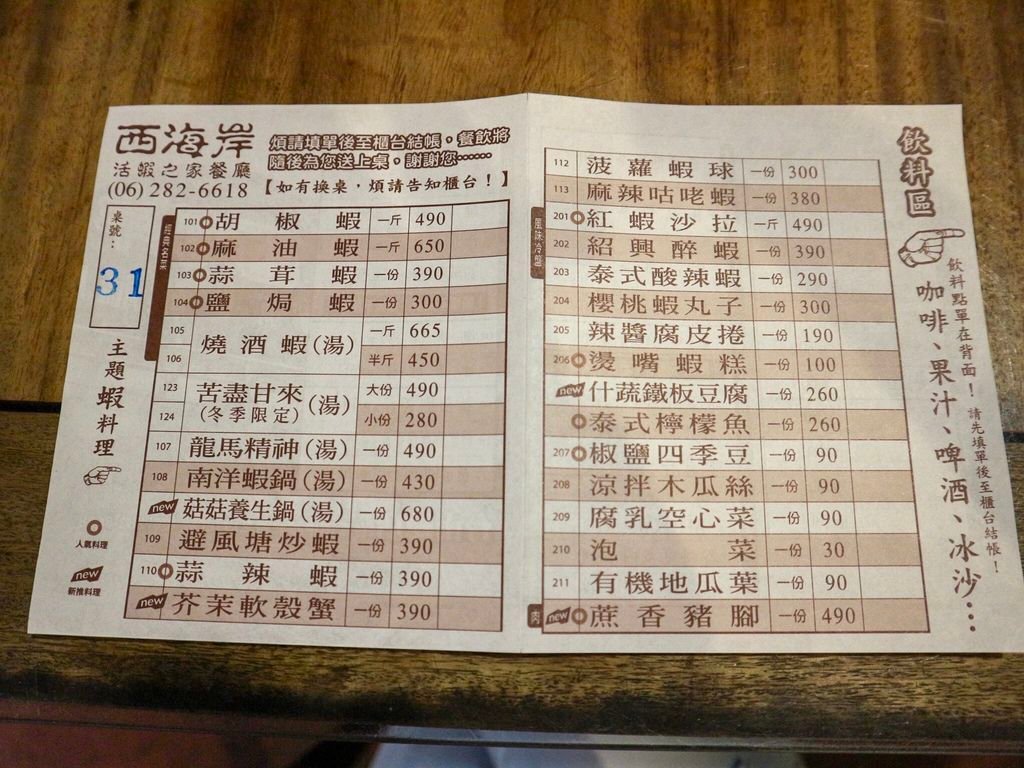 西海岸
活蝦之家餐廳
(06) 282-6618
煩請填單後至櫃台結帳，餐飲將
隨後為您送上桌，謝謝您……
【如有換桌，煩請告知櫃台！】
桌號：
31
主題蝦料理
人氣料理
new
新推料理
經典名菜
101 胡椒蝦 一斤 490
102 麻油蝦 一斤 650
103 蒜茸蝦 一份 390
104 鹽焗蝦 一份 300
105 燒酒蝦(湯) 一斤 665
106 半斤 450
123 苦盡甘來(湯) 大份 490
124 (冬季限定) 小份 280
107 龍馬精神(湯) 一份 490
108 南洋蝦鍋(湯) 一份 430
new 菇菇養生鍋(湯) 一份 680
109 避風塘炒蝦 一份 390
110 蒜辣蝦 一份 390
new 芥茉軟殼蟹 一份 390
112 菠蘿蝦球 一份 300
113 麻辣咕咾蝦 一份 380
風味冷盤
201 紅蝦沙拉 一斤 490
202 紹興醉蝦 一份 390
203 泰式酸辣蝦 一份 290
204 櫻桃蝦丸子 一份 300
205 辣醬腐皮捲 一份 190
206 燙嘴蝦糕 一份 100
new 什蔬鐵板豆腐 一份 260
泰式檸檬魚 一份 260
207 椒鹽四季豆 一份 90
208 涼拌木瓜絲 一份 90
209 腐乳空心菜 一份 90
210 泡菜 一份 30
211 有機地瓜葉 一份 90
肉 new 蔗香豬腳 一份 490
飲料區
飲料點單在背面！請先填單後至櫃台結帳！
咖啡、果汁、啤酒、冰沙…